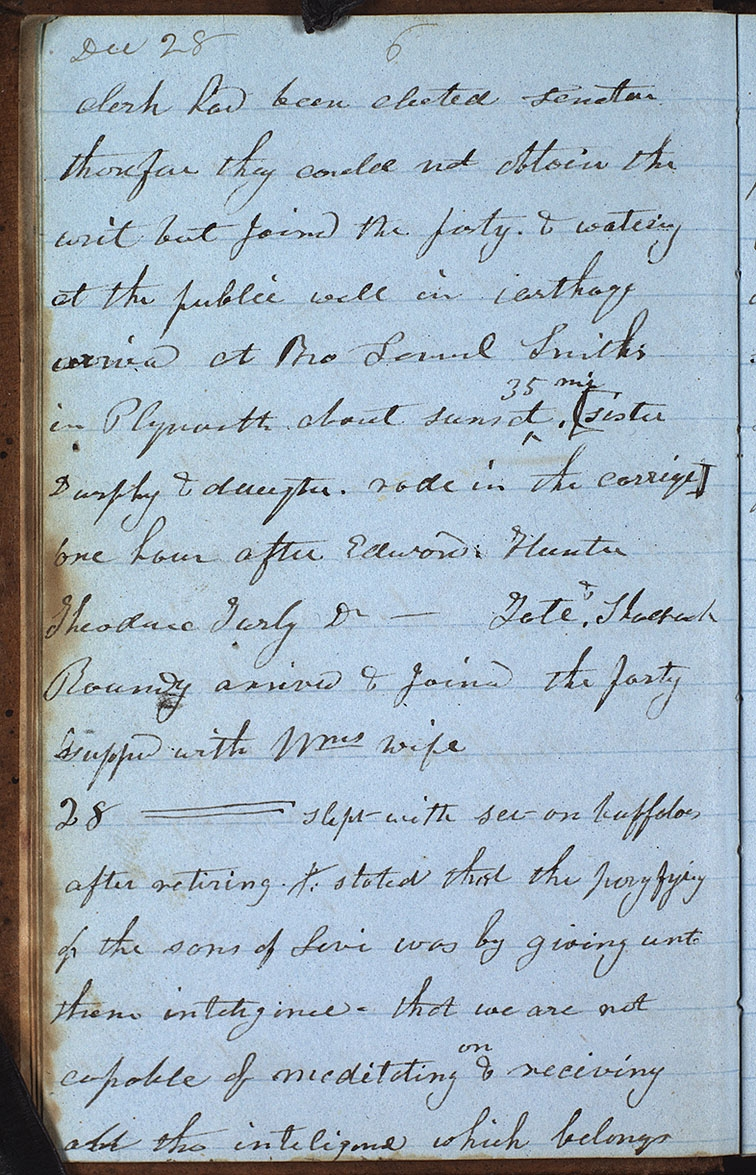 Dec 28 6
clerk had been elected senator
therefore they could not obtain the
writ but joind the party. & watering
at the public well in carthage
arrived at Bro Samuel Smiths
35 mi
in Plymouth about sunset. [sister
Durphy & daughter. rode in the carrige]
one hour after Edward Hunter
Theodore Turly Dr — Tate, & Shadrach
Roundy arrived & joind the party
supped with Wms wife
28 ——— slept with sec on buffaloes
after retiring. J. stated that the puryfying
of the sons of Levi was by giving unto
them inteligince - that we are not
on
capable of meditating & reciving
all the inteligence which belongs